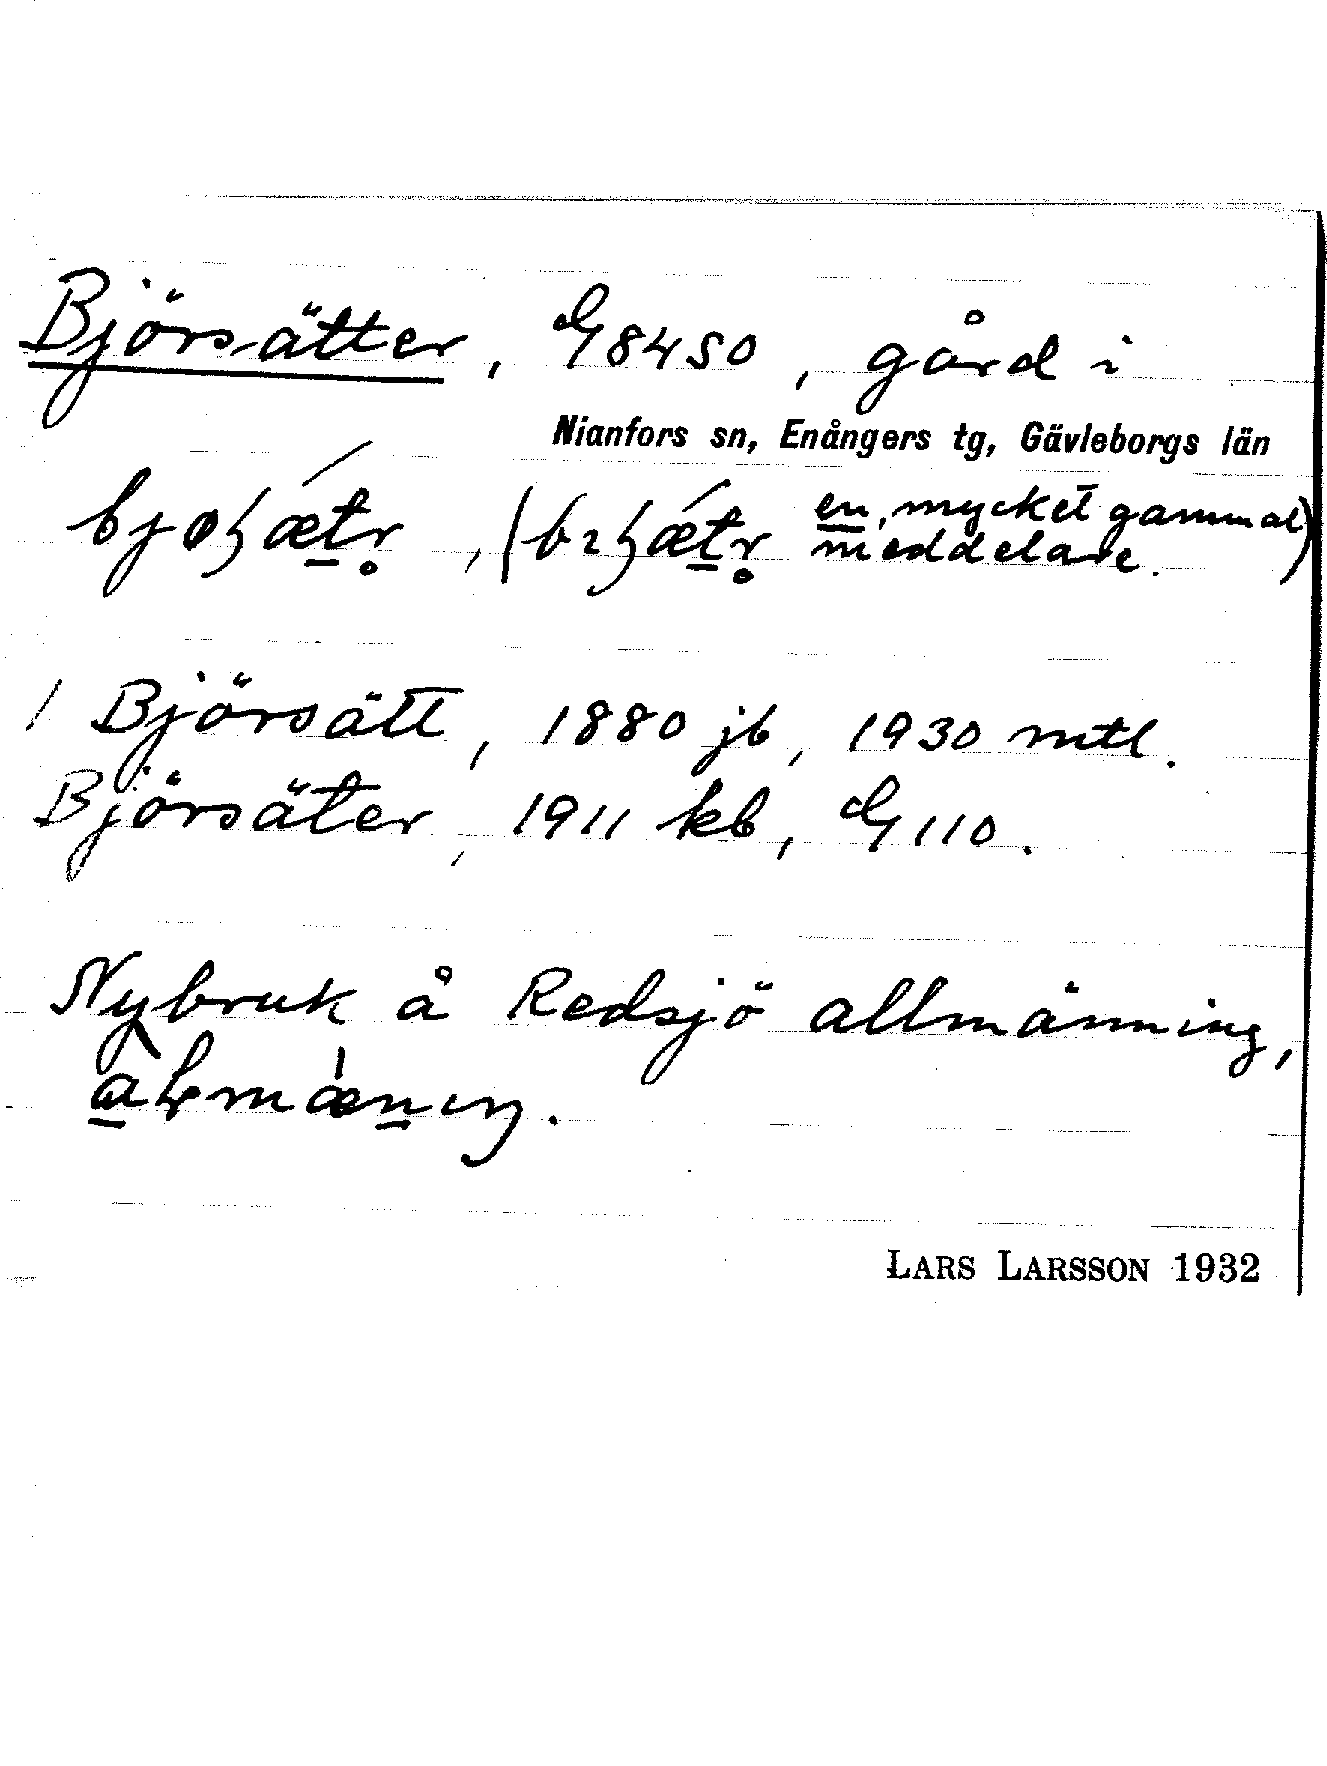 Björsätter, G 8450, gård i
Nianfors sn, Enångers tg, Gävleborgs län
en, mycket gammal)
meddelare.
/ Björsätt, 1880 jb, 1930 mtl.
Björsäter, 1911 kb, G 110.
Nybruk å Redsjö allmänning,
LARS LARSSON 1932